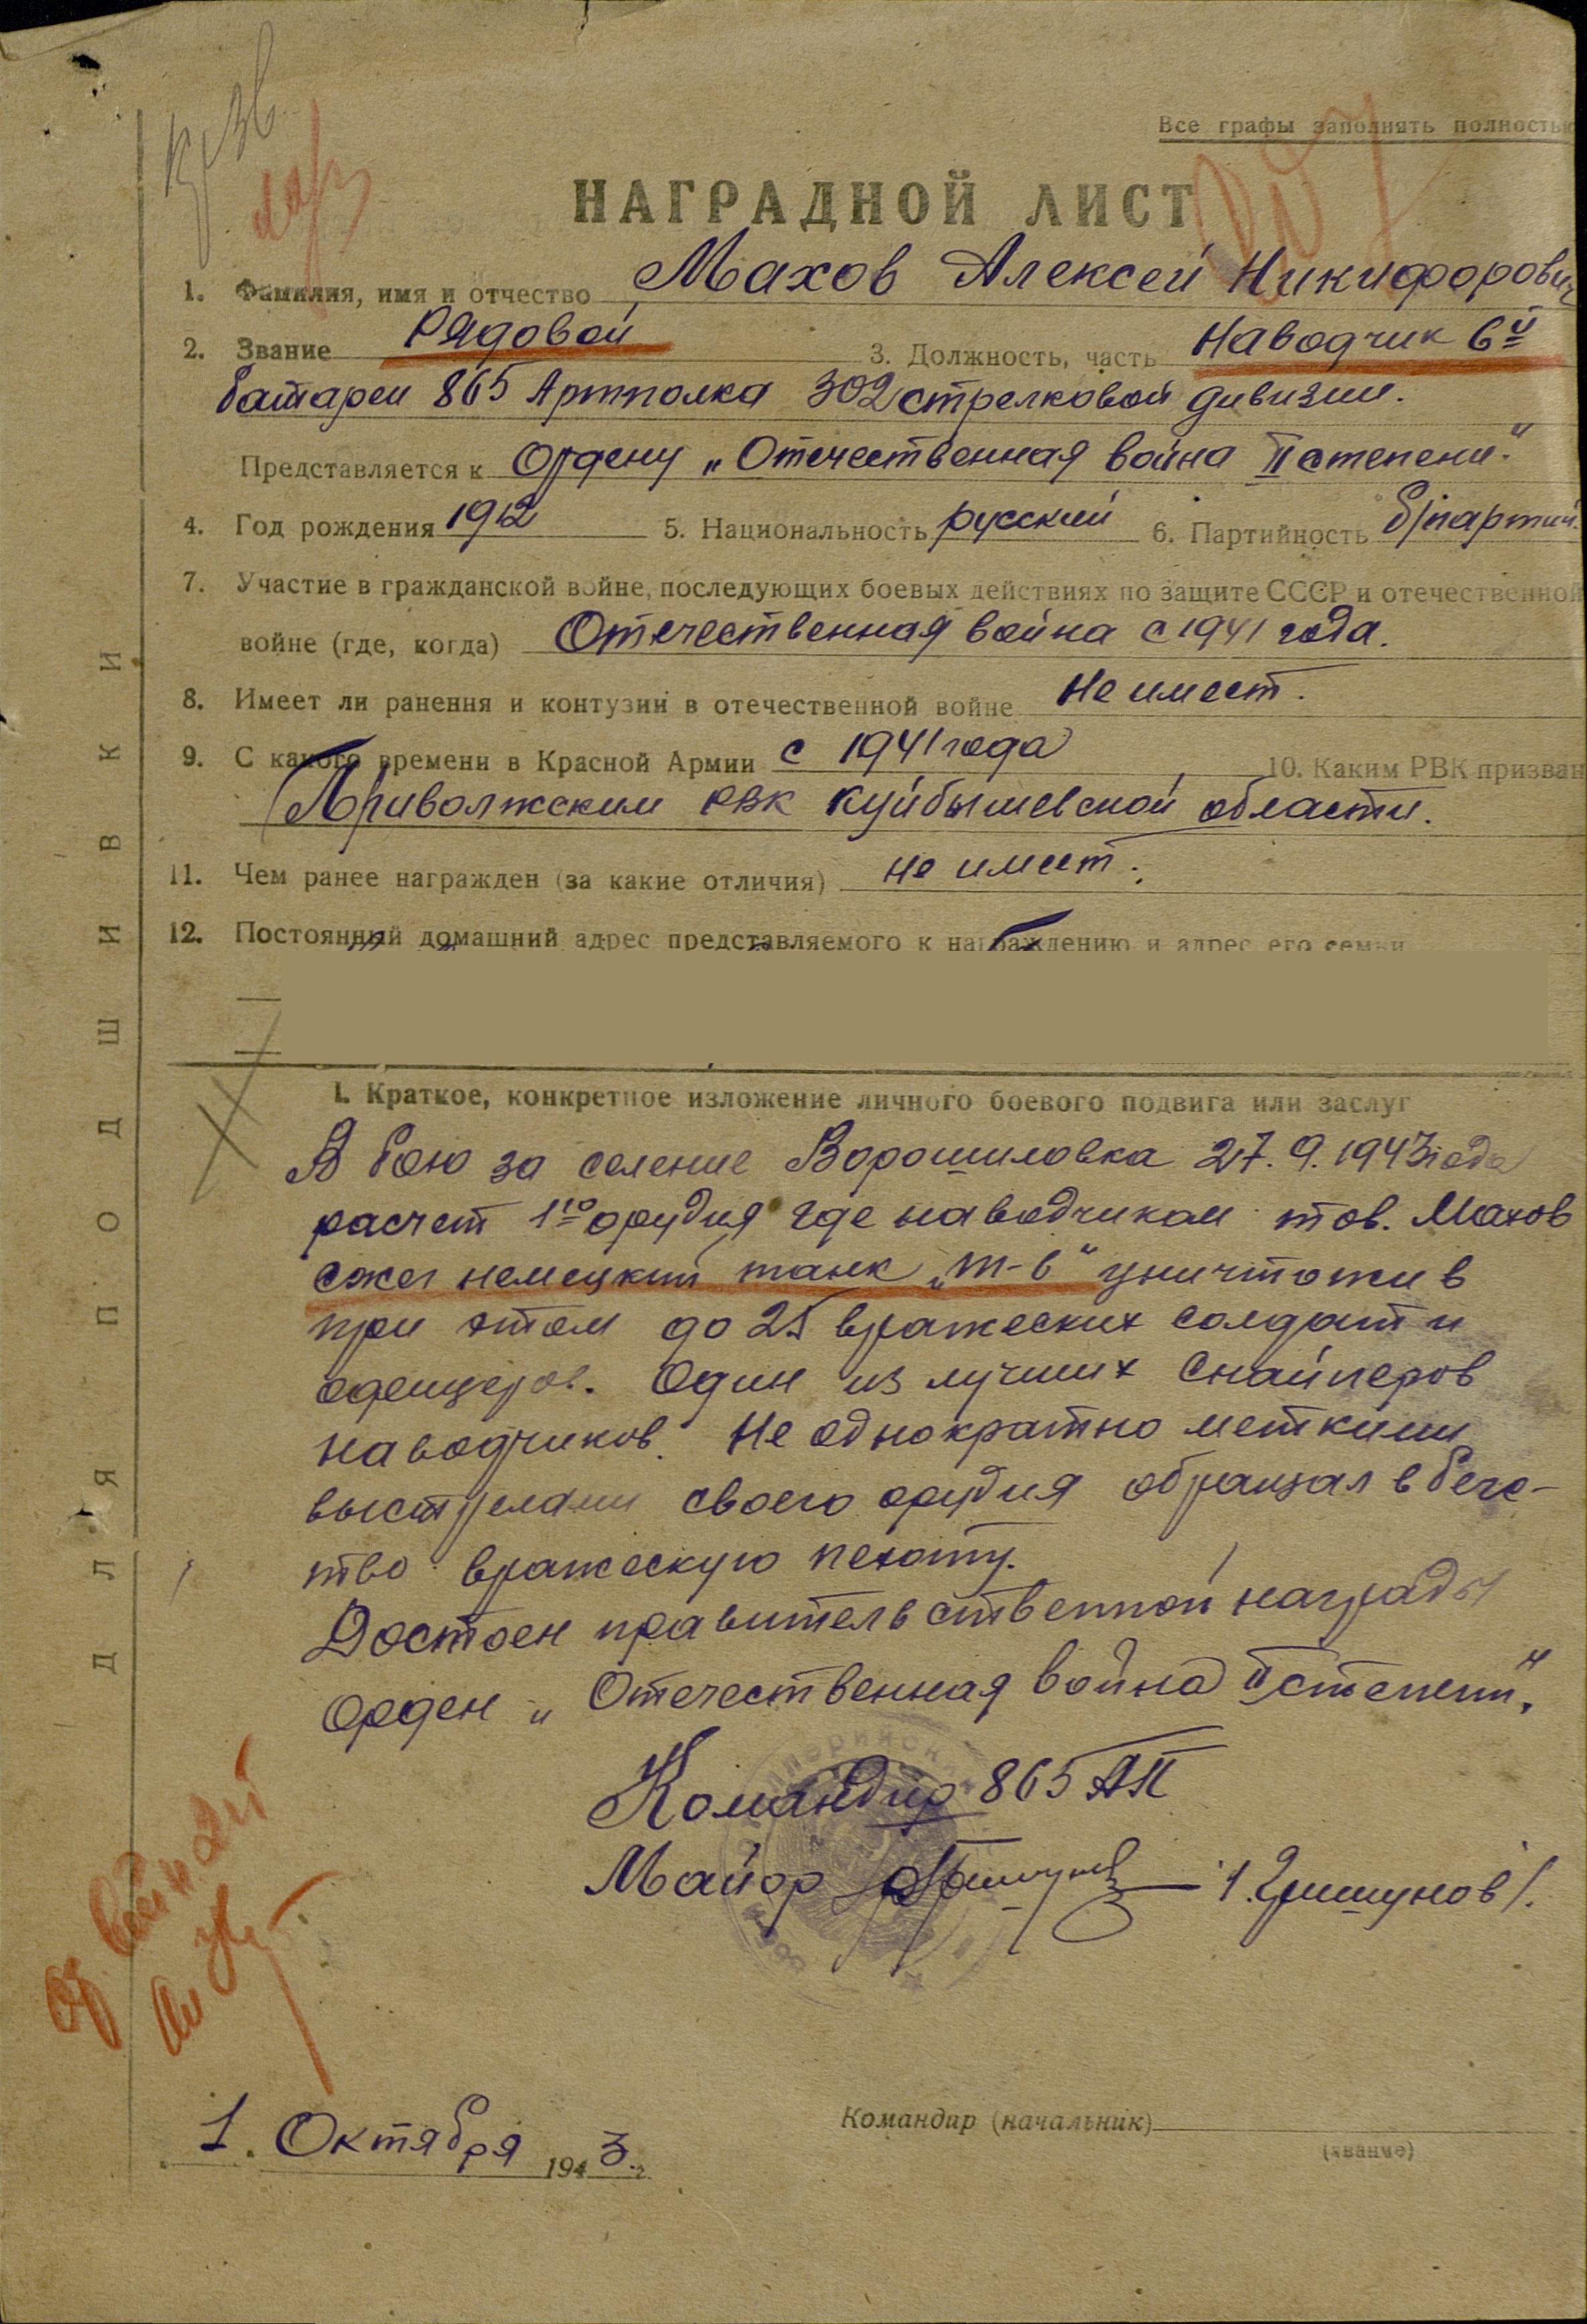 Все графы заполнять полностью
НАГРАДНОЙ ЛИСТ
1. Фамилия, имя и отчество Махов Алексей Никифорович
2. Звание Рядовой 3. Должность, часть Наводчик 6й
батареи 865 Артполка 302 стрелковой дивизии.
Представляется к Ордену „Отечественная война II степени".
4. Год рождения 1912 5. Национальность русский 6. Партийность б/партий.
7. Участие в гражданской войне, последующих боевых действиях по защите СССР и отечественной
войне (где, когда) Отечественная война с 1941 года.
8. Имеет ли ранения и контузии в отечественной войне Не имеет.
9. С какого времени в Красной Армии с 1941 года 10. Каким РВК призван
Приволжским РВК Куйбышевской области.
11. Чем ранее награжден (за какие отличия) не имеет.
12. Постоянный домашний адрес представляемого к награждению и адрес его семьи
I. Краткое, конкретное изложение личного боевого подвига или заслуг
В бою за селение Ворошиловка 27.9.1943 года
расчет 1го орудия где наводчиком тов. Махов
сжег немецкий танк „Т-6" уничтожив
при этом до 25 вражеских солдат и
офицеров. Один из лучших снайперов
наводчиков. Не однократно меткими
выстрелами своего орудия обращал в бегс-
тво вражескую пехоту.
Достоен правительственной награды
Орден „Отечественная война II степени".
Командир 865 АП
Майор /Гришунов/.
1. Октября 1943 г.
Командир (начальник)
(звание)
ДЛЯ ПОДШИВКИ